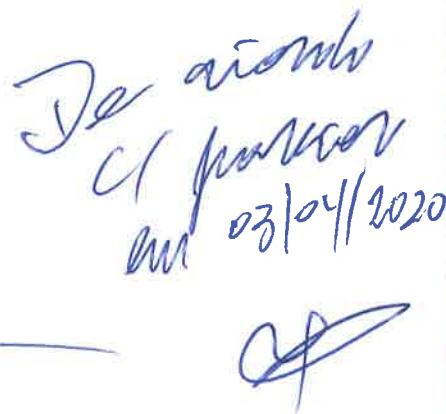 De acordo
c/ parecer
em 03/04/2020